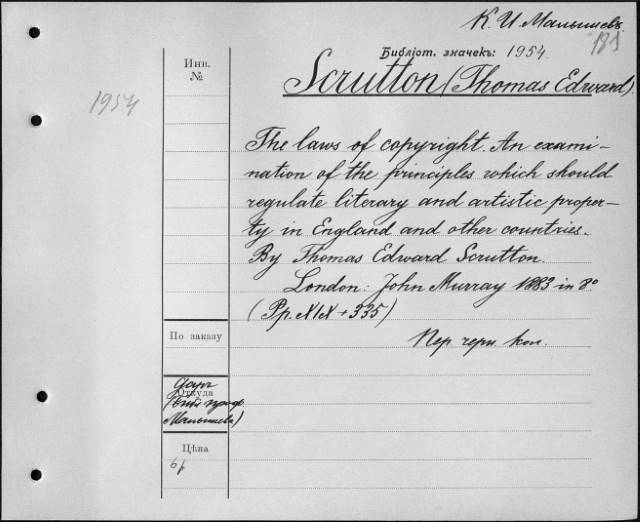 К. И. Малышевъ
181
Библіот. значекъ: 1954.
Инв.
№
1954
Scrutton (Thomas Edward).
The laws of copyright. An exami-
nation of the principles which should
regulate literary and artistic proper-
ty in England and other countries.
By Thomas Edward Scrutton.
London: John Murray 1883 in 8°
(Pp. XIX + 335)
Пер. черн. кол.
По заказу
Даръ
Откуда
(Библ. проф.
Малышева)
Цѣна
6 р